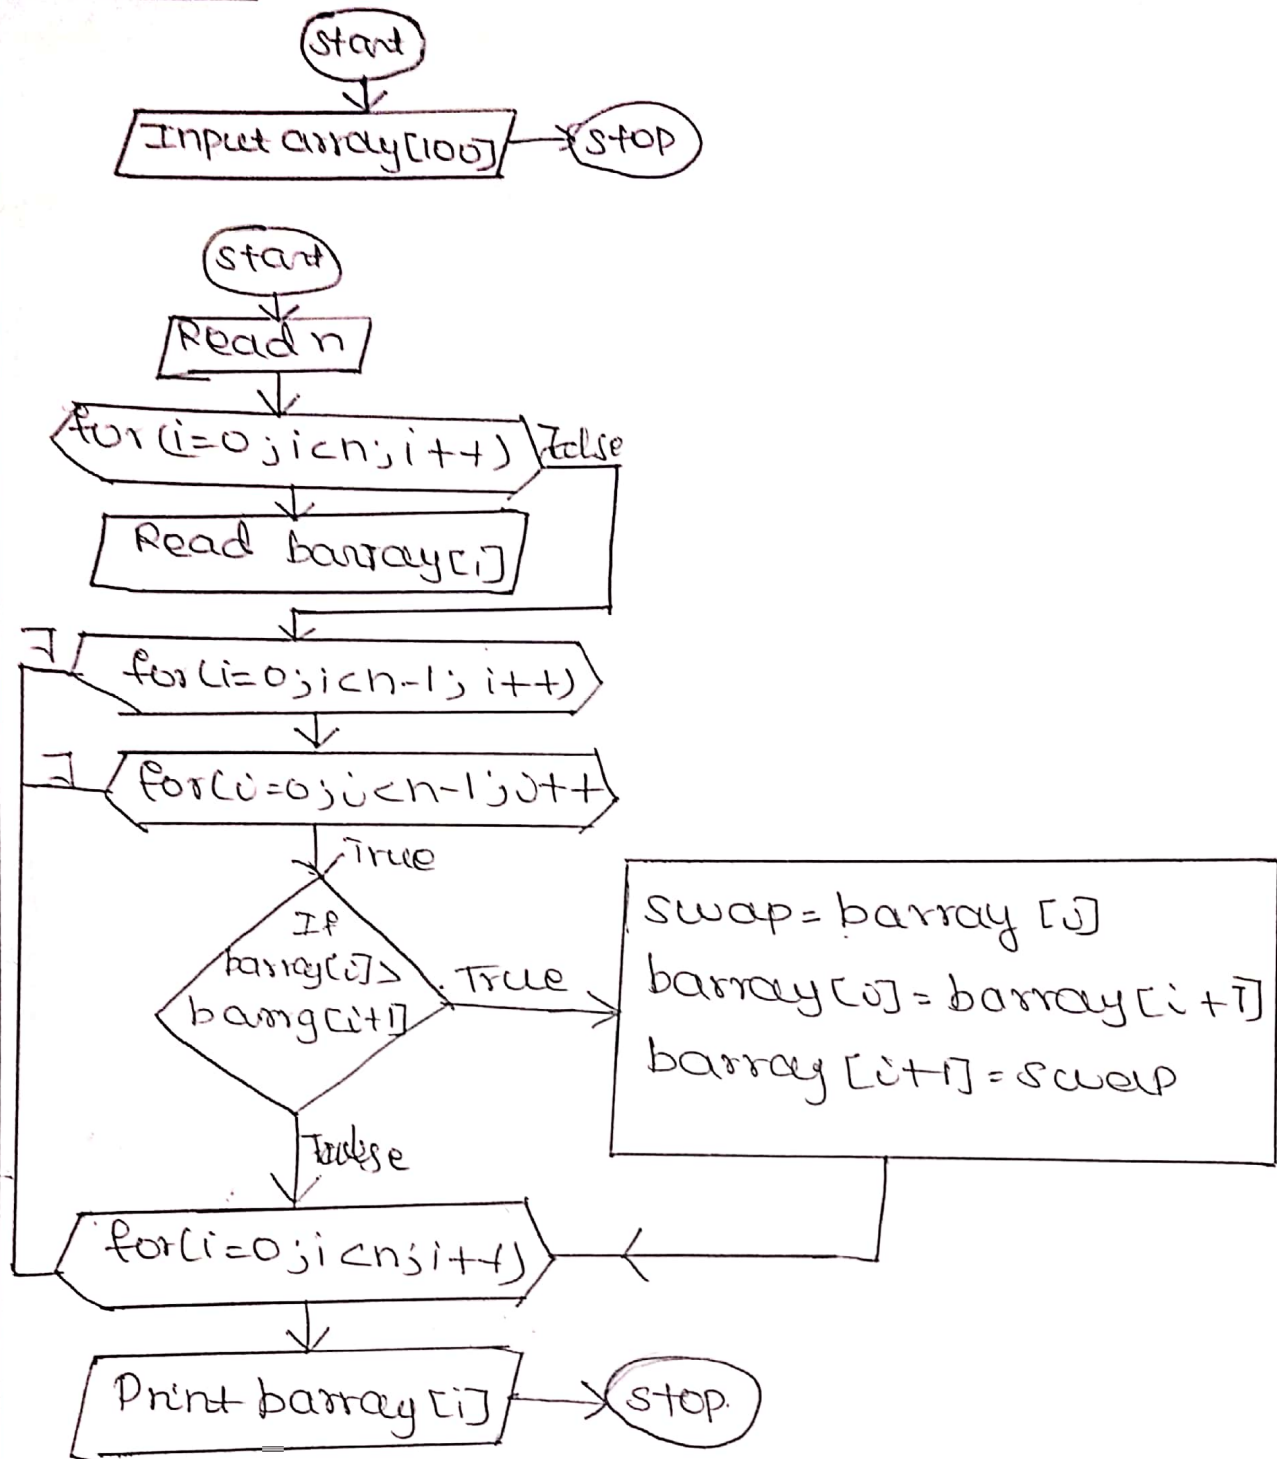 start
Input array[100]
stop
start
Read n
for(i=0;i<n;i++)
False
Read barray[i]
F
for(i=0;i<n-1;i++)
F
for(i=0;i<n-1;i++
True
If
barray[i]>
barrg[i+1]
True
swap=barray[j]
barray[i]=barray[i+1]
barray[i+1]=swap
for(i=0;i<n;i++)
Print barray[i]
stop.